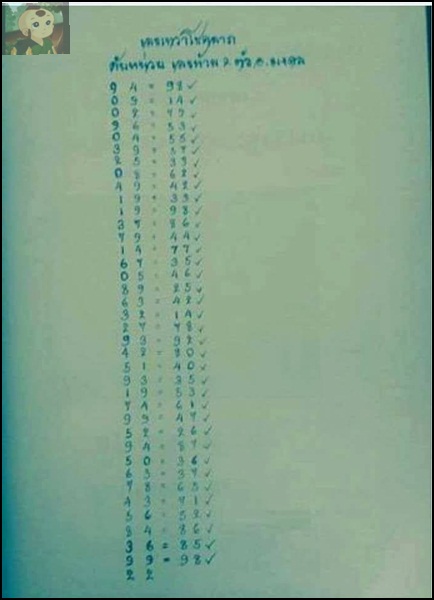 เลขเทวาโชคลาภ
9 4 = 98 ✓
0 9 = 14 ✓
0 2 = 79 ✓
9 6 = 53 ✓
0 4 = 55 ✓
3 9 = 57 ✓
2 5 = 39 ✓
0 8 = 62 ✓
4 9 = 42 ✓
1 9 = 33 ✓
1 9 = 98 ✓
3 7 = 86 ✓
7 9 = 44 ✓
1 4 = 77 ✓
6 7 = 35 ✓
0 5 = 46 ✓
8 9 = 25 ✓
6 3 = 42 ✓
3 2 = 14 ✓
2 7 = 78 ✓
9 3 = 92 ✓
4 2 = 80 ✓
5 1 = 40 ✓
9 3 = 35 ✓
1 9 = 53 ✓
7 4 = 61 ✓
9 9 = 47 ✓
5 2 = 26 ✓
9 4 = 87 ✓
5 0 = 36 ✓
6 3 = 37 ✓
7 8 = 65 ✓
4 3 = 71 ✓
5 6 = 52 ✓
2 4 = 86 ✓
3 6 = 85 ✓
9 9 = 98 ✓
2 2